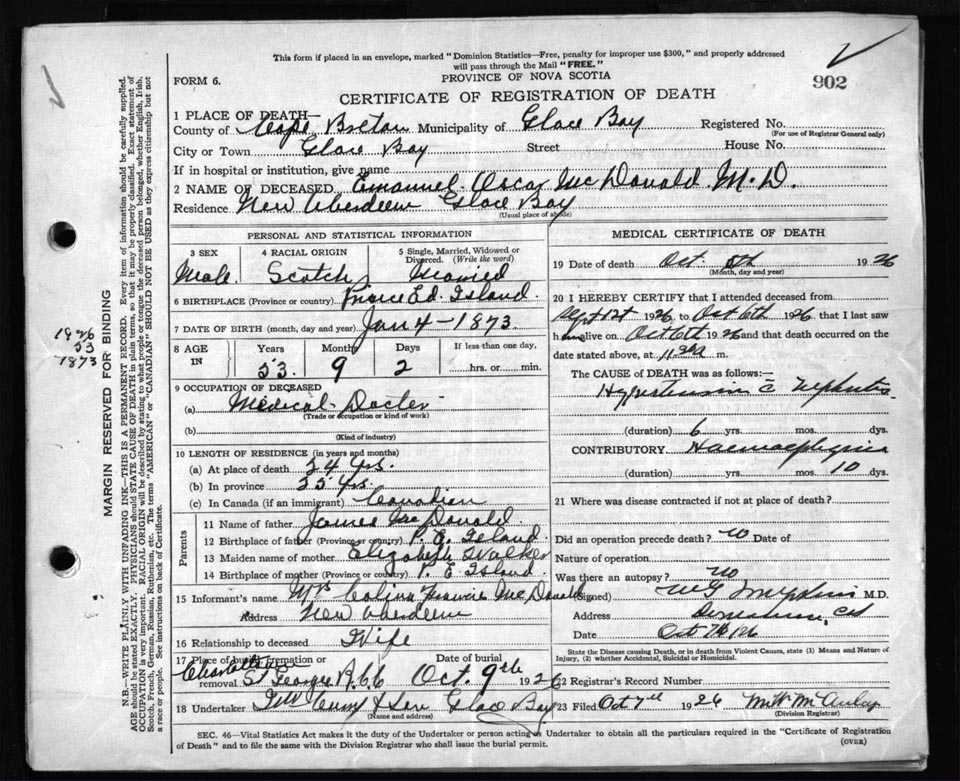 This form if placed in an envelope, marked "Dominion Statistics—Free, penalty for improper use $300," and properly addressed
will pass through the Mail "FREE."
PROVINCE OF NOVA SCOTIA
FORM 6.
902
CERTIFICATE OF REGISTRATION OF DEATH
1 PLACE OF DEATH—
County of Cape Breton Municipality of Glace Bay Registered No.
(For use of Registrar General only)
City or Town Glace Bay Street House No.
If in hospital or institution, give name
2 NAME OF DECEASED Emanuel Oscar McDonald M.D.
Residence New Aberdeen Glace Bay
(Usual place of abode)
PERSONAL AND STATISTICAL INFORMATION
3 SEX 4 RACIAL ORIGIN 5 Single, Married, Widowed or
Divorced. (Write the word)
Male Scotch Married
6 BIRTHPLACE (Province or country) Prince Ed. Island.
7 DATE OF BIRTH (month, day and year) Jan 4 - 1873.
8 AGE IN Years Months Days If less than one day,
53. 9 2 hrs. or min.
9 OCCUPATION OF DECEASED
(a) Medical Doctor
(Trade or occupation or kind of work)
(b)
(Kind of industry)
10 LENGTH OF RESIDENCE (in years and months)
(a) At place of death 24 yrs.
(b) In province 25 yrs.
(c) In Canada (if an immigrant) Canadian
Parents
11 Name of father James McDonald
12 Birthplace of father (Province or country) P. E. Island.
13 Maiden name of mother Elizabeth Walker
14 Birthplace of mother (Province or country) P. E Island.
15 Informant's name Mrs McDonald
Address New Aberdeen
16 Relationship to deceased Wife
17 Place of burial, cremation or Date of burial
removal St Georges Oct. 9th 1926
18 Undertaker & Son Glace Bay
(Name and address)
MEDICAL CERTIFICATE OF DEATH
19 Date of death Oct. 1926
(Month, day and year)
20 I HEREBY CERTIFY that I attended deceased from
Sept 1926, to Oct 6th 1926, that I last saw
him alive on Oct 6th 1926 and that death occurred on the
date stated above, at 11 m.
The CAUSE of DEATH was as follows:—
Hypertension Nephritis
(duration) 6 yrs. mos. dys.
CONTRIBUTORY
(duration) yrs. mos. 10 dys.
21 Where was disease contracted if not at place of death?
Did an operation precede death? no Date of
Nature of operation
Was there an autopsy? no
(Signed) M.D.
Address
Date Oct 7th 26
State the Disease causing Death, or in death from Violent Causes, state (1) Means and Nature of
Injury, (2) whether Accidental, Suicidal or Homicidal.
22 Registrar's Record Number
23 Filed Oct 7th 1926
(Division Registrar)
SEC. 46—Vital Statistics Act makes it the duty of the Undertaker or person acting as Undertaker to obtain all the particulars required in the "Certificate of Registration
of Death" and to file the same with the Division Registrar who shall issue the burial permit.
(OVER)
1926
53
1873
MARGIN RESERVED FOR BINDING
N.B.—WRITE PLAINLY WITH UNFADING INK—THIS IS A PERMANENT RECORD. Every item of information should be carefully supplied.
AGE should be stated EXACTLY. PHYSICIANS should STATE CAUSE OF DEATH in plain terms, so that it may be properly classified. Exact statement of
OCCUPATION is very important. RACIAL ORIGIN will be described by stating to what people or tongue the deceased person belonged, whether English, Irish,
Scotch, French, German, Russian, Ruthenian, etc. The terms "AMERICAN" or "CANADIAN" SHOULD NOT BE USED as they express citizenship but not
a race or people. See instructions on back of Certificate.